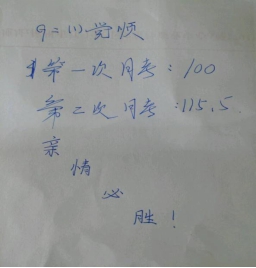 9=(1)党顺
第一次月考:100
第二次月考:115.5
亲
情
必
胜!